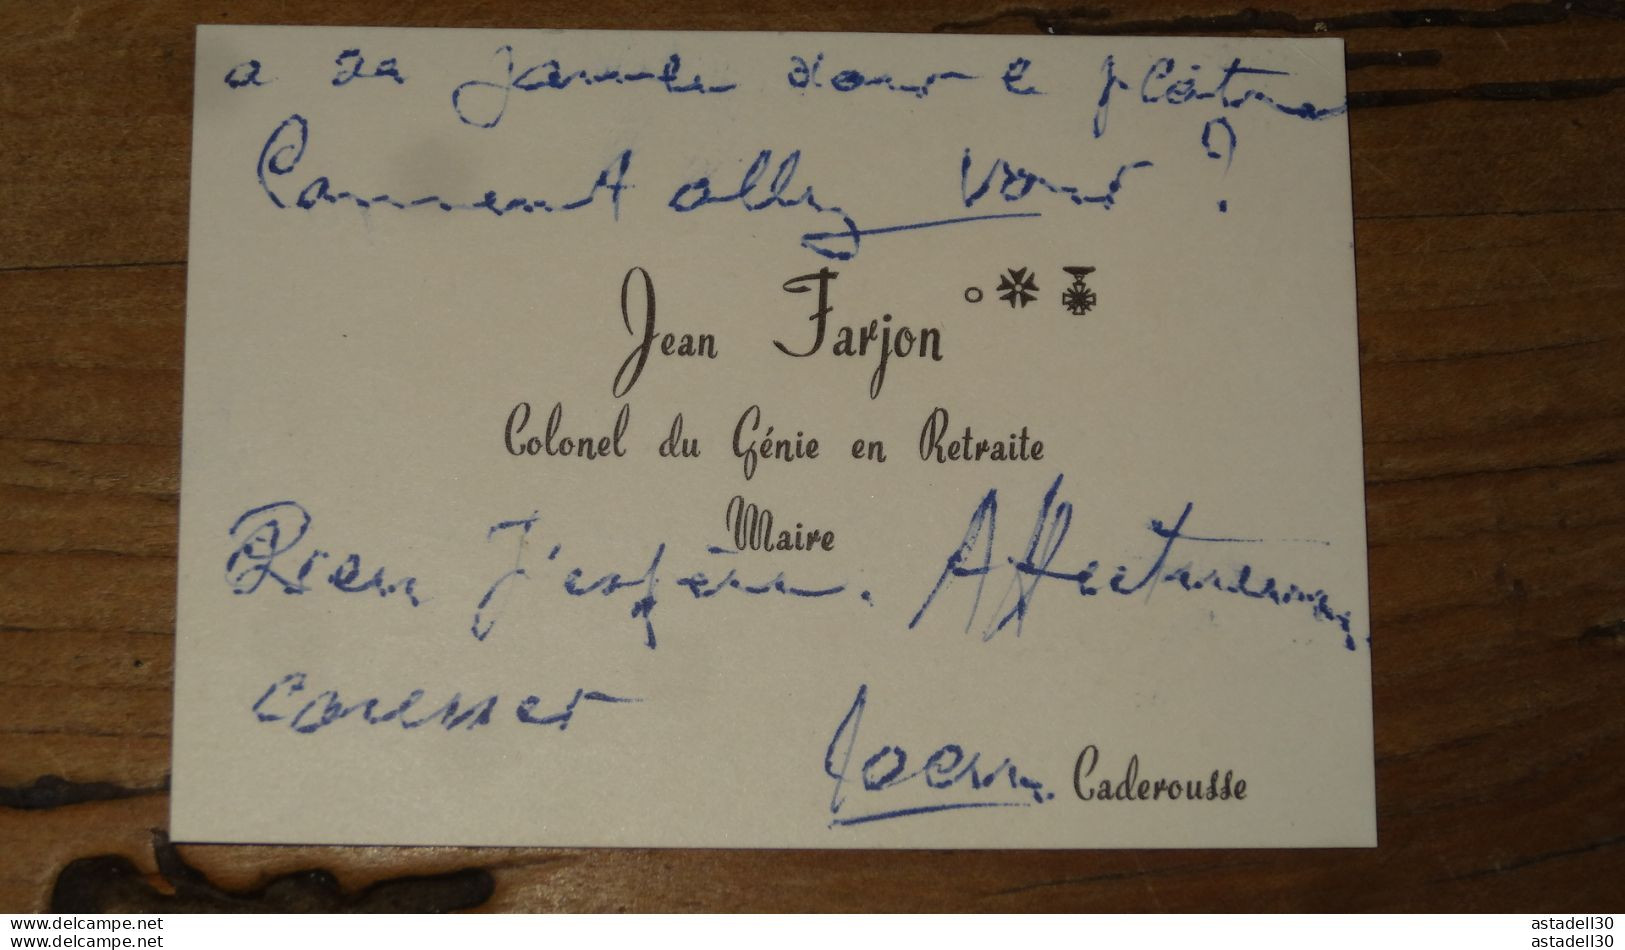 a sa jambe dans le plâtre
Comment allez vous ?
Jean Farjon
Colonel du Génie en Retraite
Maire
Bien J'espère. Affectueuses
caresses
Jean
Caderousse
www.delcampe.net
www.delcampe.net
astadell30
astadell30